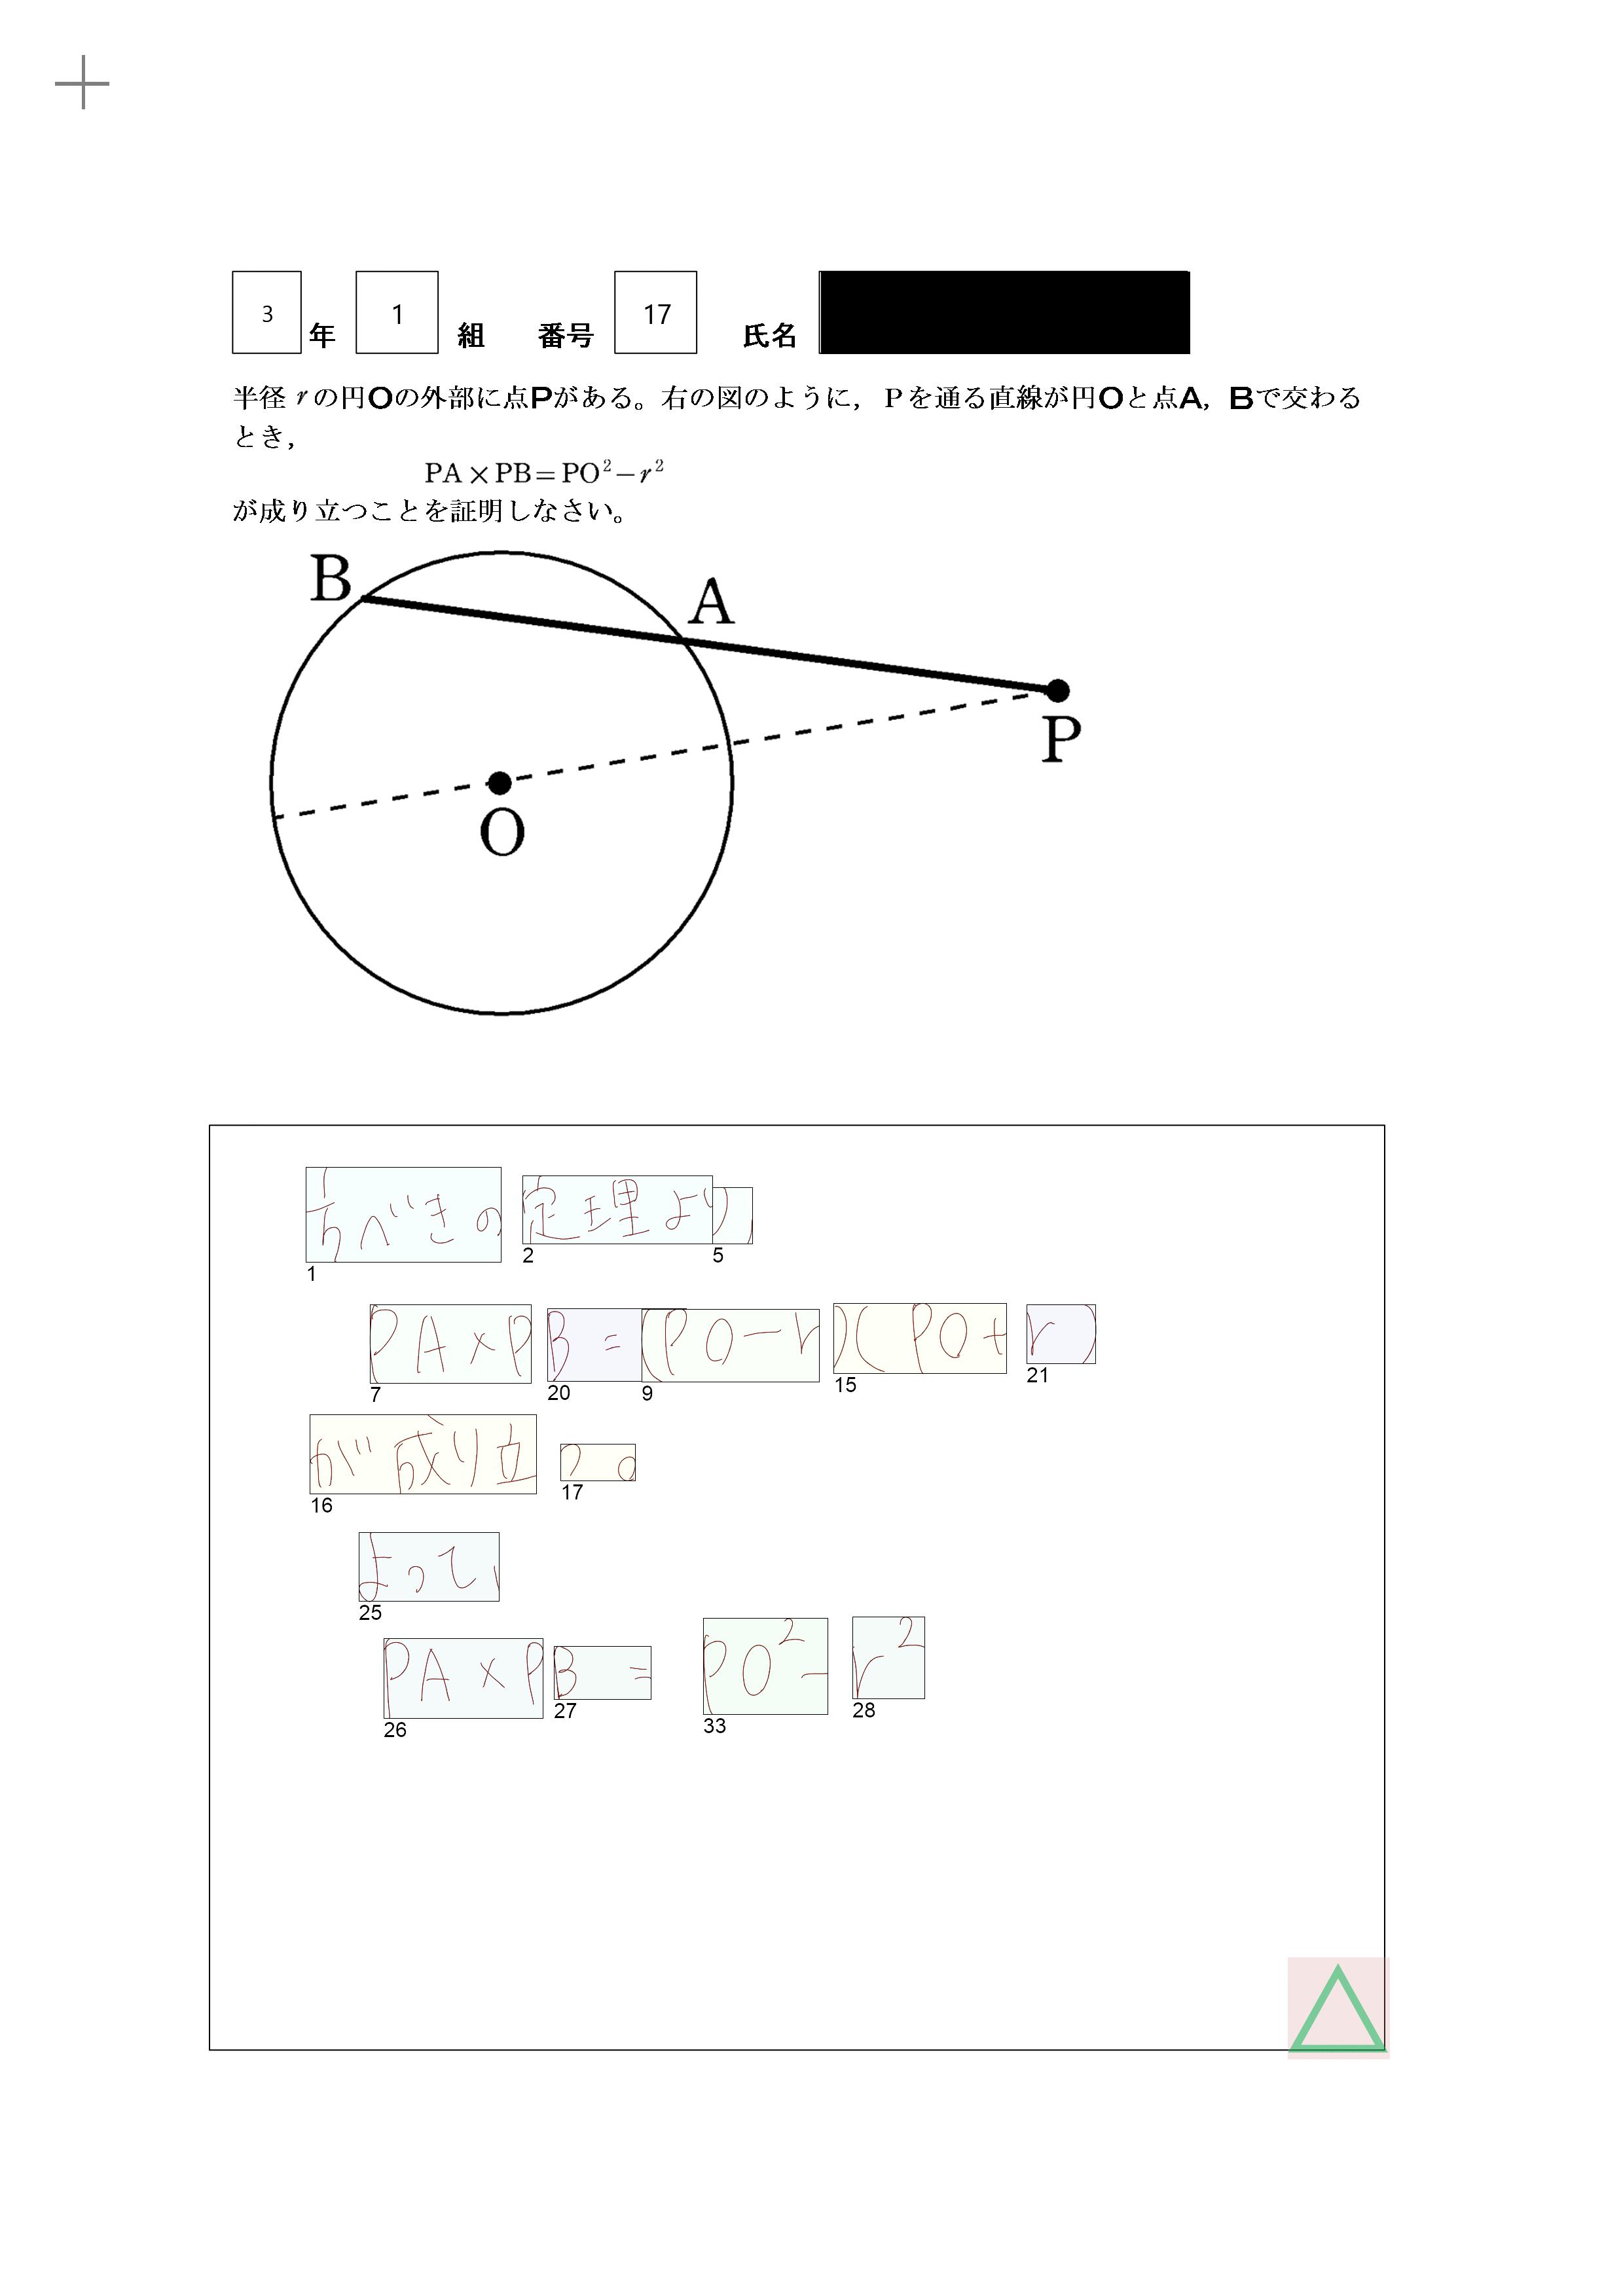 3 年 1 組 番号 17 氏名
半径 r の円Oの外部に点Pがある。右の図のように，Pを通る直線が円Oと点A，Bで交わる
とき，
PA×PB=PO²−r²
が成り立つことを証明しなさい。
B
A
P
O
方べきの 定理より)
1 2 5
PA×PB=(PO−r)(PO+r)
7 20 9 15 21
が成り立つ。
16 17
よって,
25
PA×PB = PO²−r²
26 27 33 28